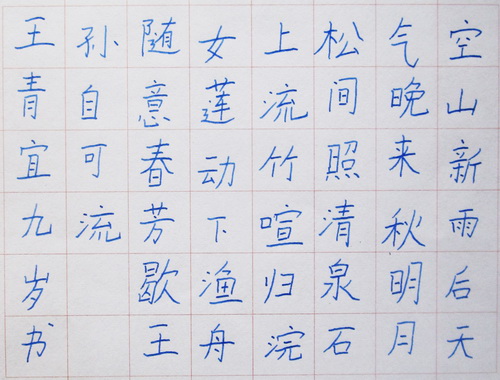 空山新雨后天
气晚来秋明月
松间照清泉石
上流竹喧归浣
女莲动下渔舟
随意春芳歇王
孙自可流
王青宜九岁书